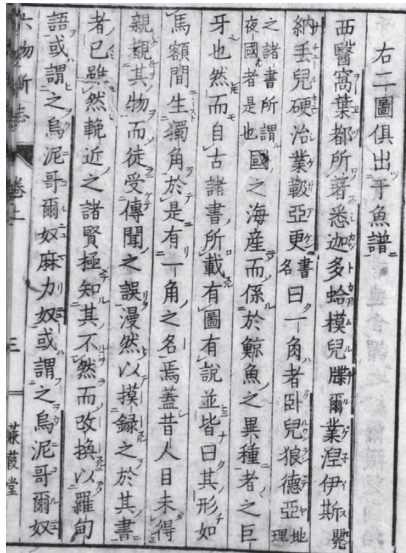 右二圖俱出于魚譜
西醫窩葉都所著悉迦多蛤模兒牒爾業涅伊斯鼉
納丟兒硬治業靫亞更書名曰一角者臥兒狼德亞地理
之諸書所謂夜國者是也國之海産而係於鯨魚之異種者之巨
牙也然而自古諸書所載有圖有說並皆曰其形如
馬額間生獨角於是有一角之名焉蓋昔人目未得
親覩其物而徒受傳聞之誤漫然以摸録之於其書
者已雖然輓近之諸賢極知其不然而改換以羅甸
語或謂之烏泥哥爾奴麻力奴或謂之烏泥哥爾奴
六物新志 卷上 三 蒹葭堂